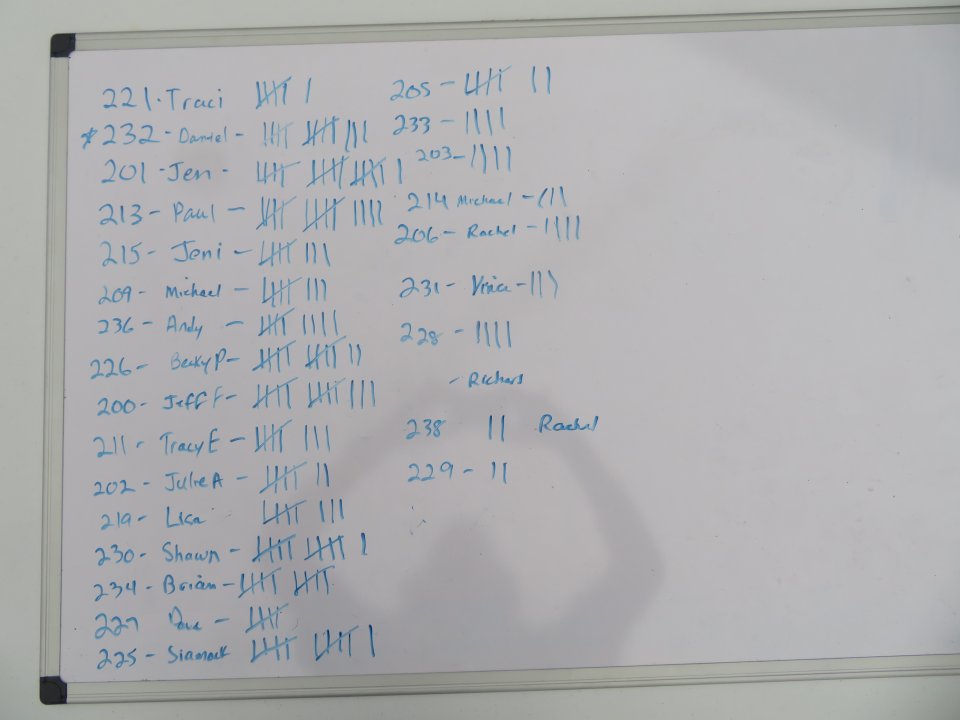 221. Traci 𝍸 |
*232 - Daniel - 𝍸 𝍸 |||
201 - Jen - 𝍸 𝍸 𝍸 |
213 - Paul - 𝍸 𝍸 ||||
215 - Joni - 𝍸 |||
209 - Michael - 𝍸 |||
236 - Andy - 𝍸 ||||
226 - Becky P - 𝍸 𝍸 ||
200 - Jeff F - 𝍸 𝍸 |||
211 - Tracy E - 𝍸 |||
202 - Julie A - 𝍸 ||
219 - Lisa 𝍸 |||
230 - Shawn - 𝍸 𝍸 |
234 - Brian - 𝍸 𝍸
227 Dave - 𝍸
225 - Siamack 𝍸 𝍸 |
205 - 𝍸 ||
233 - ||||
203 - ||||
214 Michael - |||
206 - Rachel - ||||
231 - Vince - |||
228 - ||||
- Richard
238 || Rachel
229 - ||